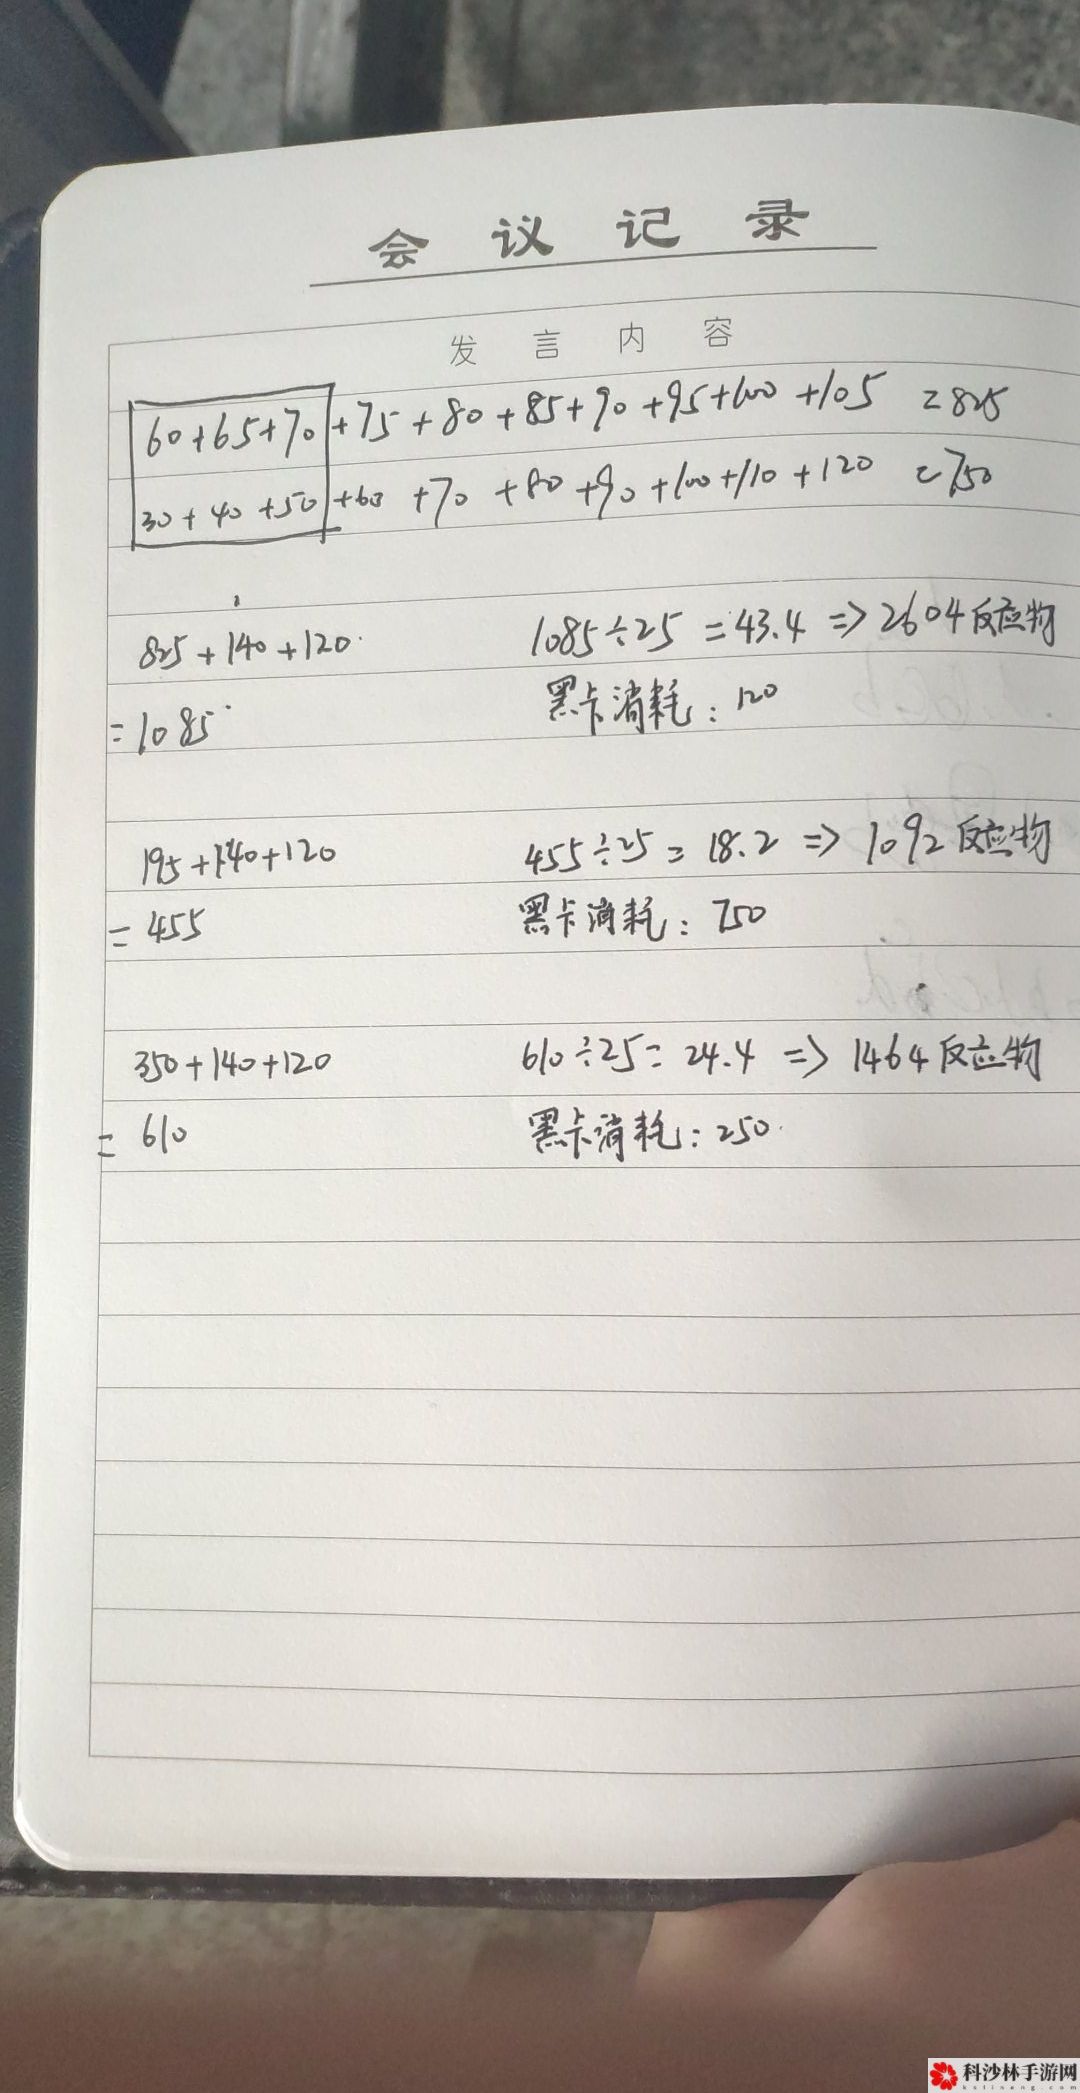 会议记录
发言内容
60+65+70+75+80+85+90+95+100+105 =825
30+40+50+60+70+80+90+100+110+120 =750
825+140+120
1085÷25=43.4 => 2604反应物
=1085
黑卡消耗：120
195+140+120
455÷25=18.2 => 1092反应物
=455
黑卡消耗：750
350+140+120
610÷25=24.4 => 1464反应物
=610
黑卡消耗：250
科沙林手游网